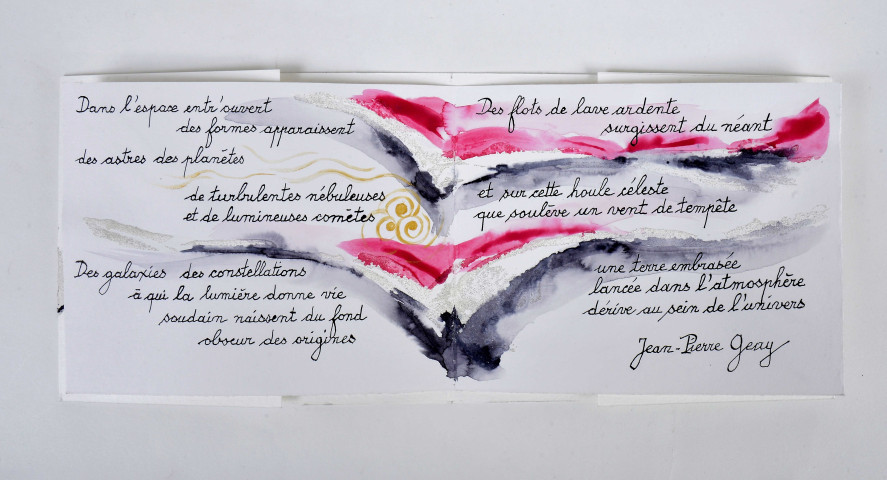 Dans l'espace entr'ouvert
des formes apparaissent
des astres des planètes
de turbulentes nébuleuses
et de lumineuses comètes
Des galaxies des constellations
à qui la lumière donne vie
soudain naissent du fond
obscur des origines
Des flots de lave ardente
surgissent du néant
et sur cette houle céleste
que soulève un vent de tempête
une terre embrasée
lancée dans l'atmosphère
dérive au sein de l'univers
Jean-Pierre Geay